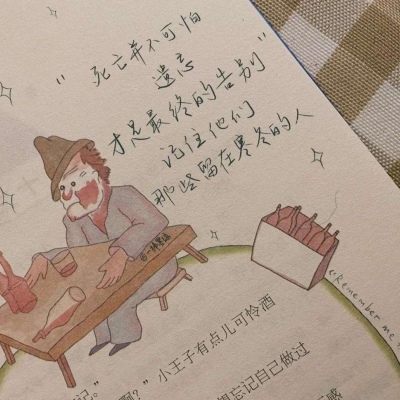 "死亡并不可怕
遗忘
才是最终的告别
记住他们
那些留在寒冬的人
@Remember me
记。"
啊?"小王子有点儿可怜酒
想忘记自己做过